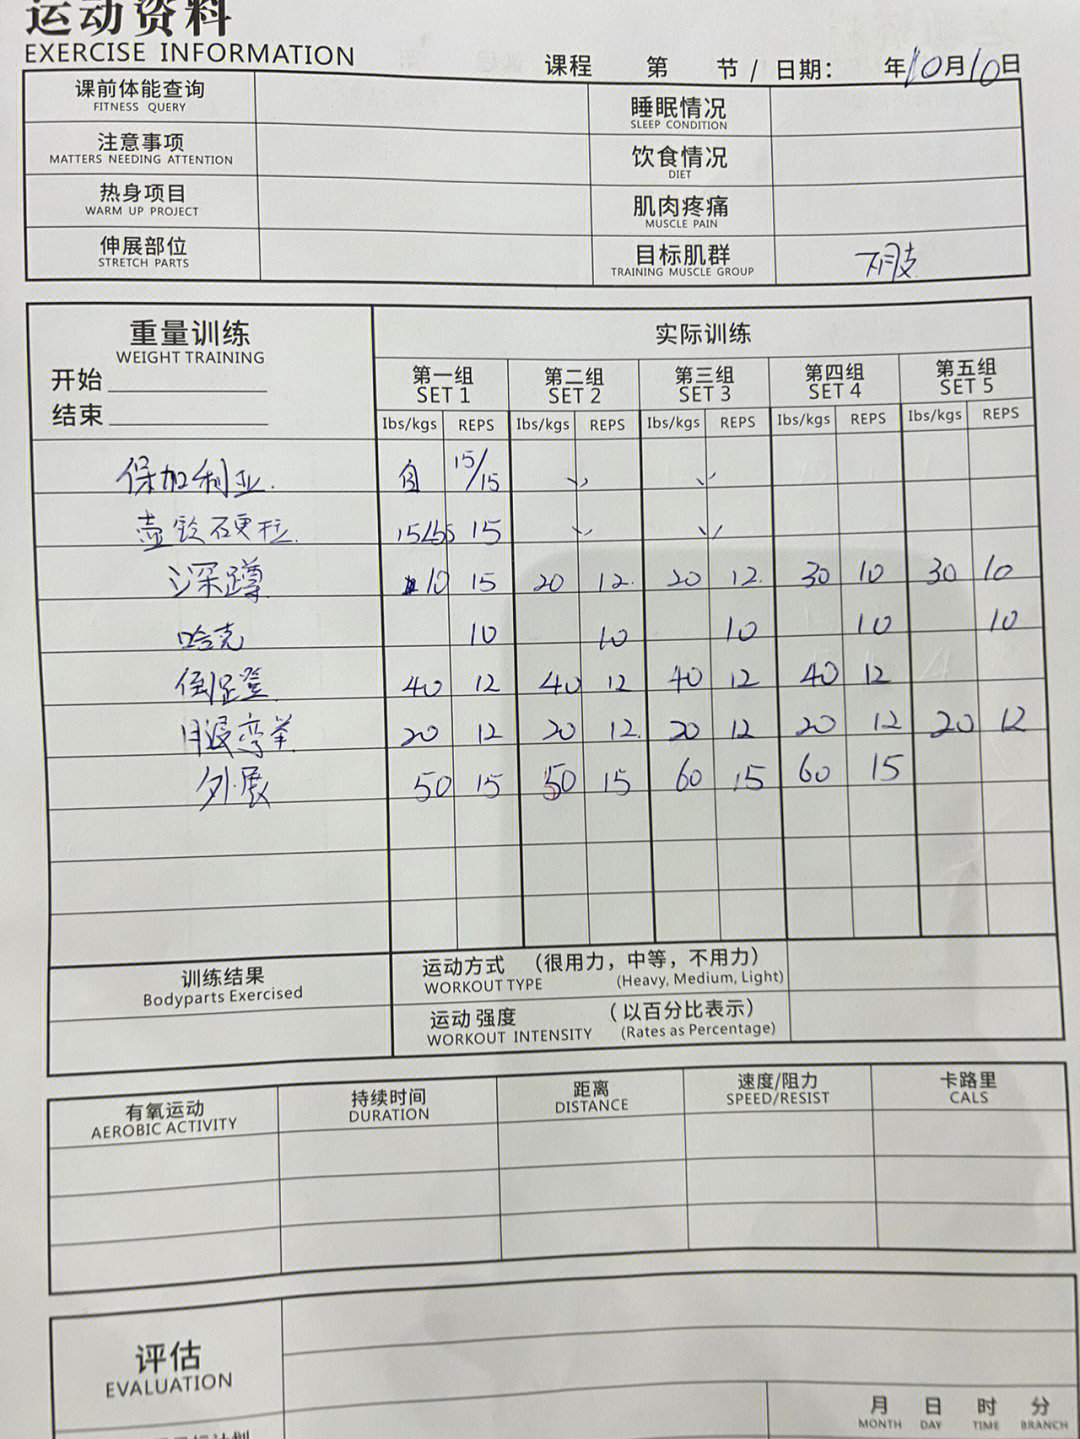 运动资料
EXERCISE INFORMATION
课程 第 节 / 日期: 年10月10日
课前体能查询 睡眠情况
FITNESS QUERY SLEEP CONDITION
注意事项 饮食情况
MATTERS NEEDING ATTENTION DIET
热身项目 肌肉疼痛
WARM UP PROJECT MUSCLE PAIN
伸展部位 目标肌群 下肢
STRETCH PARTS TRAINING MUSCLE GROUP
重量训练 实际训练
WEIGHT TRAINING
开始 第一组 第二组 第三组 第四组 第五组
SET 1 SET 2 SET 3 SET 4 SET 5
结束 lbs/kgs REPS lbs/kgs REPS lbs/kgs REPS lbs/kgs REPS lbs/kgs REPS
保加利亚. 自 15/15
壶铃硬拉. 15lbs 15
深蹲 10 15 20 12. 20 12. 30 10 30 10
哈克 10 10 10 10 10
倒蹬 40 12 40 12 40 12 40 12
腿弯举 20 12 20 12. 20 12 20 12 20 12
外展 50 15 50 15 60 15 60 15
训练结果 运动方式 （很用力，中等，不用力）
Bodyparts Exercised WORKOUT TYPE (Heavy, Medium, Light)
运动强度 （以百分比表示）
WORKOUT INTENSITY (Rates as Percentage)
有氧运动 持续时间 距离 速度/阻力 卡路里
AEROBIC ACTIVITY DURATION DISTANCE SPEED/RESIST CALS
评估
EVALUATION
月 日 时 分
MONTH DAY TIME BRANCH